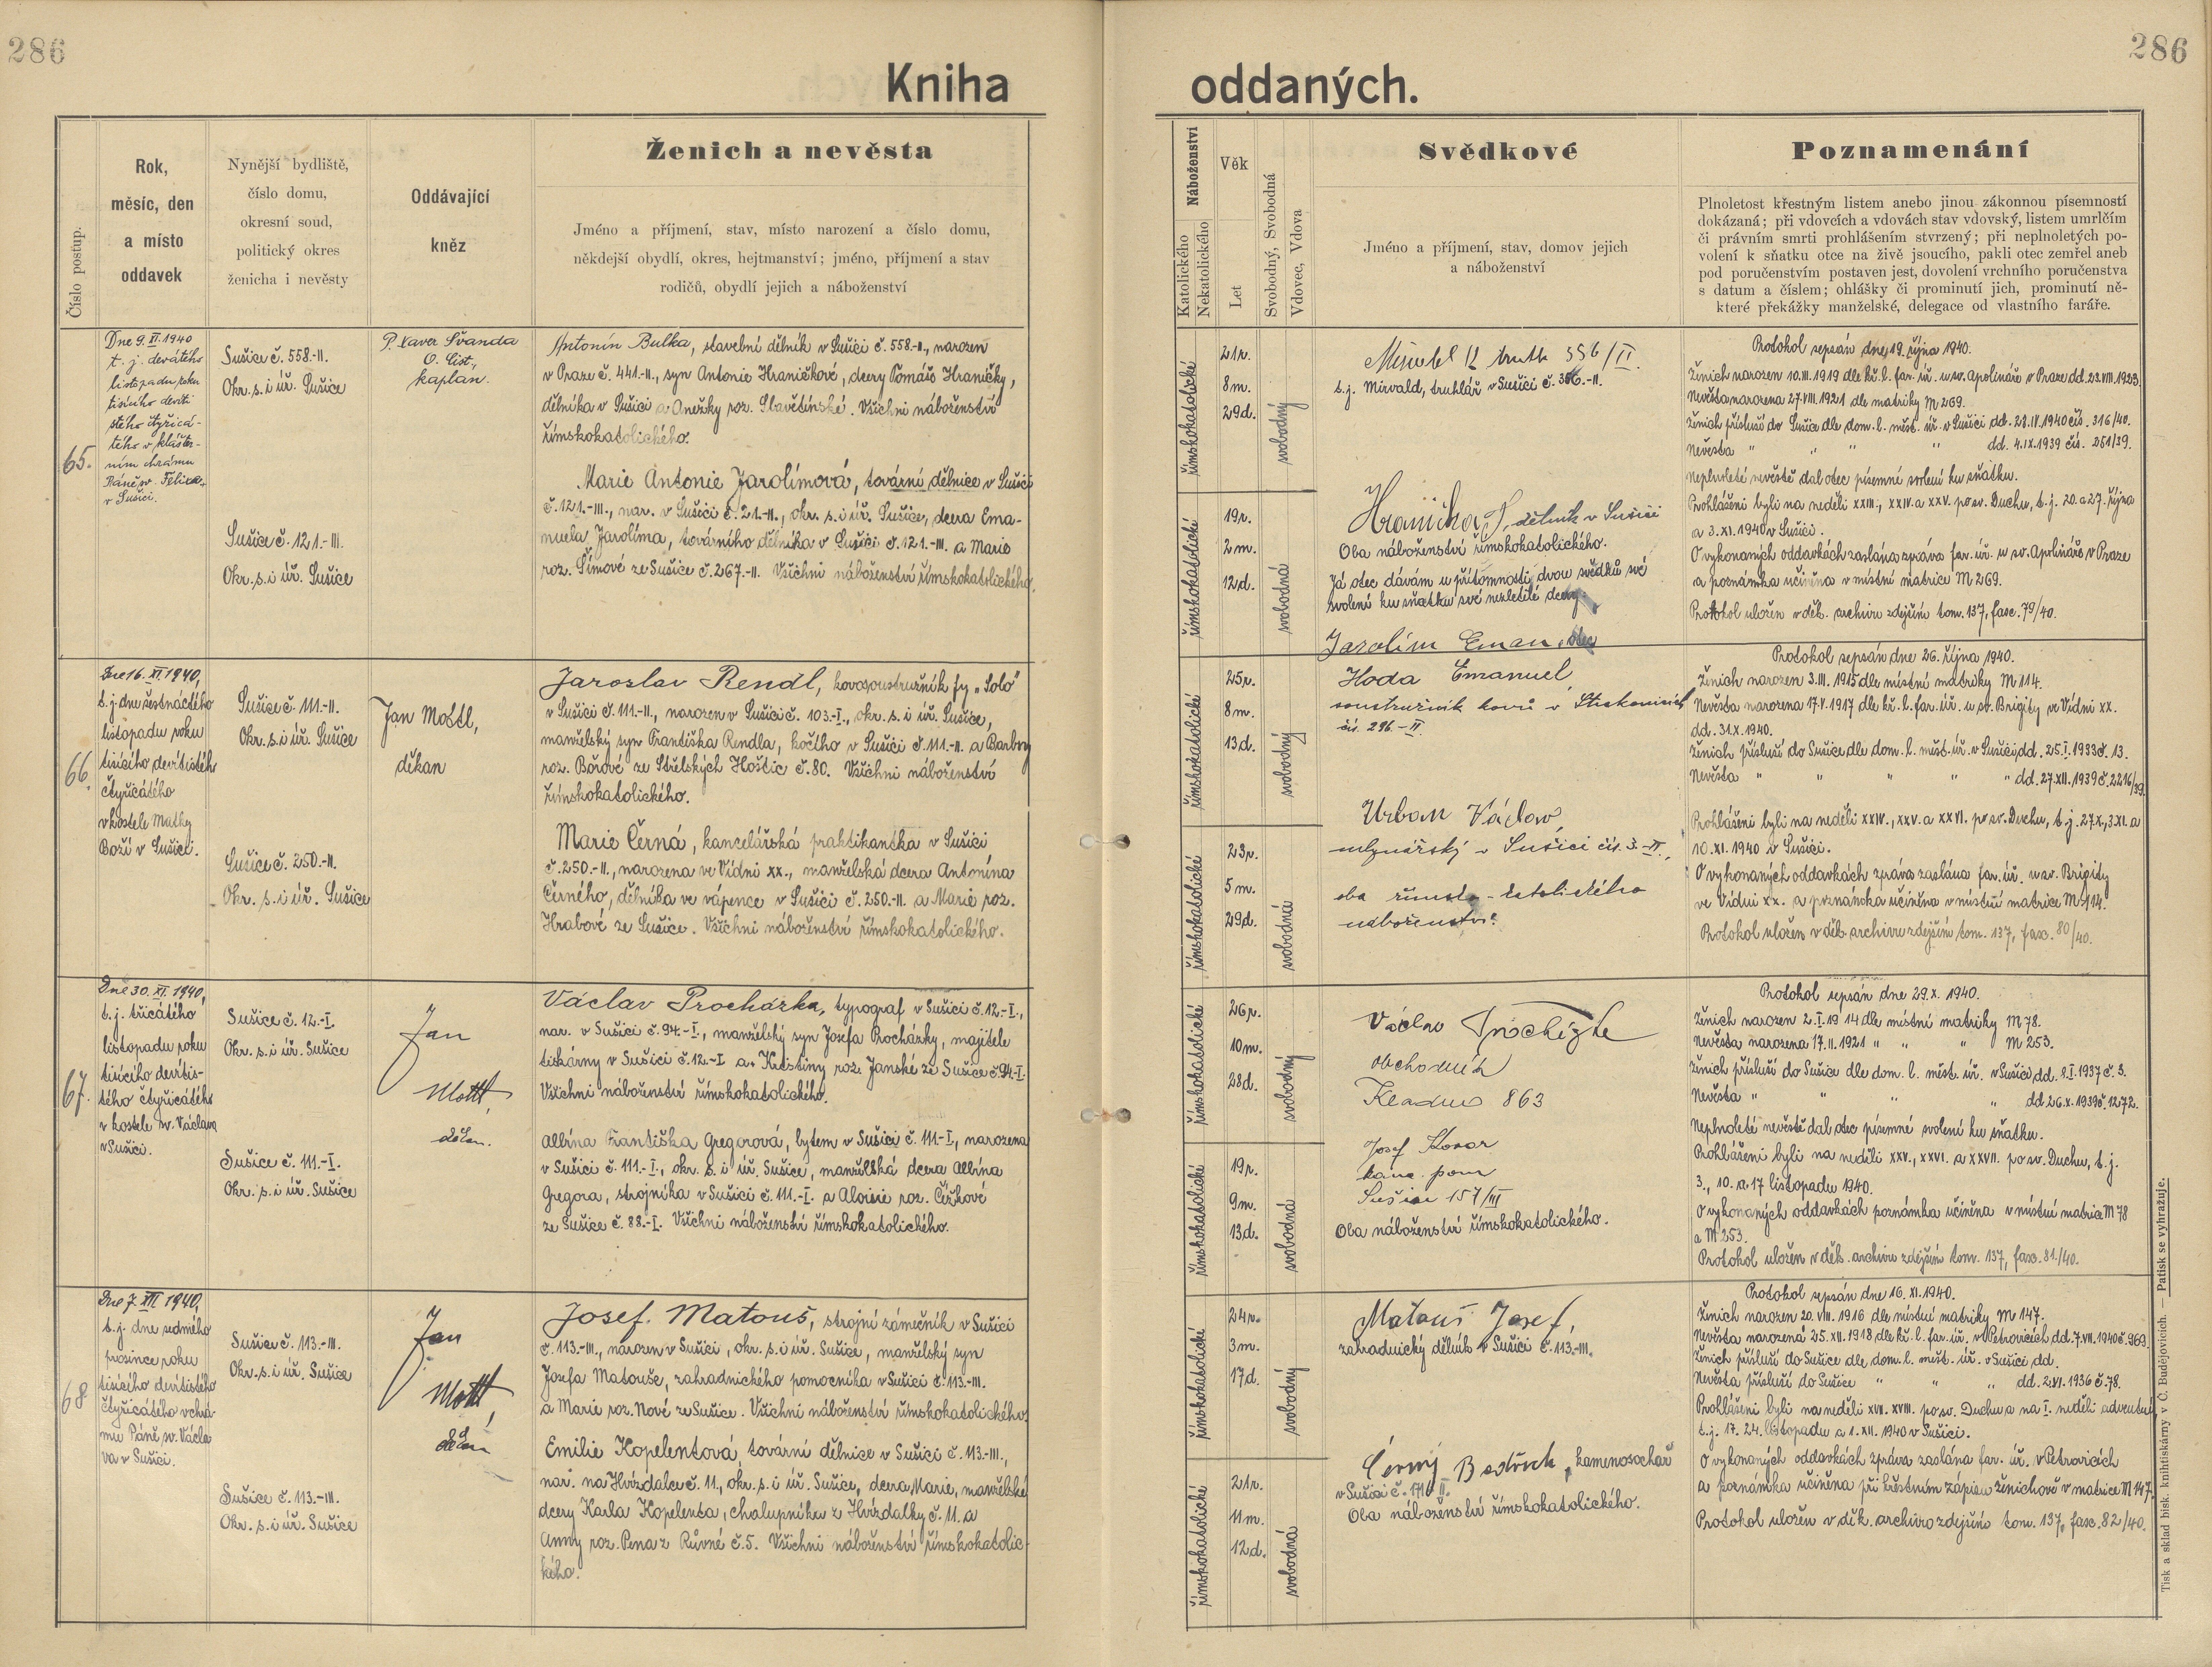 286
286
Kniha oddaných.
Číslo postup.
Rok,
měsíc, den
a místo
oddavek
Nynější bydliště,
číslo domu,
okresní soud,
politický okres
ženicha i nevěsty
Oddávající
kněz
Ženich a nevěsta
Jméno a příjmení, stav, místo narození a číslo domu,
někdejší obydlí, okres, hejtmanství; jméno, příjmení a stav
rodičů, obydlí jejich a náboženství
Náboženství
Katolického
Nekatolického
Věk
Let
Svobodný, Svobodná
Vdovec, Vdova
Svědkové
Jméno a příjmení, stav, domov jejich
a náboženství
Poznamenání
Plnoletost křestným listem anebo jinou zákonnou písemností
dokázaná; při vdovcích a vdovách stav vdovský, listem umrlčím
či právním smrti prohlášením stvrzený; při neplnoletých po-
volení k sňatku otce na živě jsoucího, pakli otec zemřel aneb
pod poručenstvím postaven jest, dovolení vrchního poručenstva
s datum a číslem; ohlášky či prominutí jich, prominutí ně-
které překážky manželské, delegace od vlastního faráře.
65.
Dne 9. XI. 1940
t. j. devátého
listopadu roku
tisícího devíti
stého čtyřicá-
tého v klášter-
ním chrámu
Páně sv. Felixa
v Sušici.
Sušice č. 558.-II.
Okr. s. i úř. Sušice
Sušice č. 121.-III.
Okr. s. i úř. Sušice
P. Xaver Švanda
O. Cist.,
kaplan.
Antonín Bulka, stavební dělník v Sušici č. 558-II., narozen
v Praze č. 441.-II., syn Antonie Hraničkové, dcery Tomáše Hraničky,
dělníka v Sušici a Anežky roz. Slavětínské. Všichni náboženství
římskokatolického.
Marie Antonie Jarolímová, tovární dělnice v Sušici
č. 121.-III., nar. v Sušici č. 21.-II., okr. s. i úř. Sušice, dcera Ema-
nuela Jarolíma, továrního dělníka v Sušici č. 121.-III. a Marie
roz. Šímové ze Sušice č. 267.-II. Všichni náboženství římskokatolického.
římskokatolické
21 r.
8 m.
29 d.
svobodný
římskokatolické
19 r.
2 m.
12 d.
svobodná
t. j. Mirvald, truhlář v Sušici č. 356.-II.
Hranička, dělník v Sušici
Oba náboženství římskokatolického.
Já otec dávám u přítomnosti dvou svědků své
svolení ku sňatku své nezletilé dcery.
Jarolím Eman. otec
Protokol sepsán dne 19. října 1940.
Ženich narozen 10. III. 1919 dle kř. l. far. úř. u sv. Apolináře v Praze dd. 23. VIII. 1933.
Nevěsta narozena 27. VIII. 1921 dle matriky M 269.
Ženich přísluší do Sušice dle dom. l. měst. úř. v Sušici dd. 28. IV. 1940 čís. 316/40.
Nevěsta " " " dd. 4. IX. 1939 čís. 251/39.
Neplnoleté nevěstě dal otec písemné svolení ku sňatku.
Prohlášeni byli na neděli XXIII., XXIV. a XXV. po sv. Duchu, t. j. 20. a 27. října
a 3. XI. 1940 v Sušici.
O vykonaných oddavkách zaslána zpráva far. úř. u sv. Apolináře v Praze
a poznámka učiněna v místní matrice M 269.
Protokol uložen v děk. archivu zdejším tom. 137, fasc. 79/40.
66.
Dne 16. XI. 1940,
t. j. dne šestnáctého
listopadu roku
tisícího devítistého
čtyřicátého
v kostele Matky
Boží v Sušici.
Sušice č. 111.-II.
Okr. s. i úř. Sušice
Sušice č. 250.-II.
Okr. s. i úř. Sušice
Jan Mottl,
děkan
Jaroslav Rendl, kovosoustružník fy „Solo“
v Sušici č. 111.-II., narozen v Sušici č. 103.-I., okr. s. i úř. Sušice,
manželský syn Františka Rendla, kočího v Sušici č. 111.-II. a Barbory
roz. Bořové ze Střelských Hoštic č. 80. Všichni náboženství
římskokatolického.
Marie Černá, kancelářská praktikantka v Sušici
č. 250.-II., narozena ve Vídni XX., manželská dcera Antonína
Černého, dělníka ve vápence v Sušici č. 250.-II. a Marie roz.
Hrabové ze Sušice. Všichni náboženství římskokatolického.
římskokatolické
25 r.
8 m.
13 d.
svobodný
římskokatolické
23 r.
5 m.
29 d.
svobodná
Hoda Emanuel
soustružník kovů v Strakonicích
čís. 296-II
Urban Václav
mlynářský v Sušici čís. 3-II.,
oba římsko-katolického
náboženství.
Protokol sepsán dne 26. října 1940.
Ženich narozen 3. III. 1915 dle místní matriky M 114.
Nevěsta narozena 17. V. 1917 dle kř. l. far. úř. u sv. Brigity ve Vídni XX.
dd. 31. X. 1940.
Ženich přísluší do Sušice dle dom. l. měst. úř. v Sušici dd. 25. I. 1933 č. 13.
Nevěsta " " " " " dd. 27. XII. 1939 č. 2216/39.
Prohlášeni byli na neděli XXIV., XXV. a XXVI. po sv. Duchu, t. j. 27. X., 3. XI. a
10. XI. 1940 v Sušici.
O vykonaných oddavkách zpráva zaslána far. úř. u sv. Brigity
ve Vídni XX. a poznámka učiněna v místní matrice M 114.
Protokol uložen v děk. archivu zdejším tom. 137, fasc. 80/40.
67.
Dne 30. XI. 1940,
t. j. třicátého
listopadu roku
tisícího devítis-
tého čtyřicátého
v kostele sv. Václava
v Sušici.
Sušice č. 12.-I.
Okr. s. i úř. Sušice
Sušice č. 111.-I.
Okr. s. i úř. Sušice
Jan
Mottl,
děkan.
Václav Procházka, typograf v Sušici č. 12.-I.,
nar. v Sušici č. 94.-I., manželský syn Josefa Procházky, majitele
tiskárny v Sušici č. 12.-I a Kristiny roz. Janské ze Sušice č. 94.-I.
Všichni náboženství římskokatolického.
Albína Františka Gregorová, bytem v Sušici č. 111.-I., narozena
v Sušici č. 111.-I., okr. s. i úř. Sušice, manželská dcera Albína
Gregora, strojníka v Sušici č. 111.-I. a Aloisie roz. Čížkové
ze Sušice č. 88.-I. Všichni náboženství římskokatolického.
římskokatolické
26 r.
10 m.
28 d.
svobodný
římskokatolické
19 r.
9 m.
13 d.
svobodná
Václav Procházka
obchodník
Kladno 863
Josef Kovar
kanc. pom
Sušice 157/III
Oba náboženství římskokatolického.
Protokol sepsán dne 29. X. 1940.
Ženich narozen 2. I. 1914 dle místní matriky M 78.
Nevěsta narozena 17. II. 1921 " " " M 253.
Ženich přísluší do Sušice dle dom. l. měst. úř. v Sušici dd. 2. I. 1937 č. 3.
Nevěsta " " " " dd. 26. X. 1939 č. 1272.
Neplnoleté nevěstě dal otec písemné svolení ku sňatku.
Prohlášeni byli na neděli XXV., XXVI. a XXVII. po sv. Duchu, t. j.
3., 10. a 17 listopadu 1940.
O vykonaných oddavkách poznámka učiněna v místní matrice M 78
a M 253.
Protokol uložen v děk. archivu zdejším tom. 137, fasc. 81./40.
68.
Dne 7. XII. 1940,
t. j. dne sedmého
prosince roku
tisícího devítistého
čtyřicátého v chrá-
mu Páně sv. Václa
va v Sušici.
Sušice č. 113.-III.
Okr. s. i úř. Sušice
Sušice č. 113.-III.
Okr. s. i úř. Sušice
Jan
Mottl,
děkan
Josef Matouš, strojní zámečník v Sušici
č. 113.-III., narozen v Sušici, okr. s. i úř. Sušice, manželský syn
Josefa Matouše, zahradnického pomocníka v Sušici č. 113.-III.
a Marie roz. Nové ze Sušice. Všichni náboženství římskokatolického.
Emilie Kopelentová, tovární dělnice v Sušici č. 113.-III.,
nar. na Hvízdalce č. 11., okr. s. i úř. Sušice, dcera Marie, manželské
dcery Karla Kopelenta, chalupníka z Hvízdalky č. 11. a
Anny roz. Pena z Růvné č. 5. Všichni náboženství římskokatolic-
kého.
římskokatolické
24 r.
3 m.
17 d.
svobodný
římskokatolické
21 r.
11 m.
12 d.
svobodná
Matouš Josef,
zahradnický dělník v Sušici č. 113.-III.
Černý Bedřich, kamenosochař
v Sušici č. 171. II.
Oba náboženství římskokatolického.
Protokol sepsán dne 16. XI. 1940.
Ženich narozen 20. VIII. 1916 dle místní matriky M 147.
Nevěsta narozená 25. XII. 1918 dle kř. l. far. úř. v Petrovicích dd. 7. VII. 1940 č. 969.
Ženich přísluší do Sušice dle dom. l. měst. úř. v Sušici dd.
Nevěsta přísluší do Sušice " " " dd. 2. VI. 1936 č. 78.
Prohlášeni byli na neděli XVII. XVIII. po sv. Duchu a na I. neděli adventní
t. j. 17. 24. listopadu a 1. XII. 1940 v Sušici.
O vykonaných oddavkách zpráva zaslána far. úř. v Petrovicích
a poznámka učiněna při křestním zápisu ženichově v matrice M 147.
Protokol uložen v děk. archivu zdejším tom. 137, fasc. 82/40.
Tisk a sklad bisk. knihtiskárny v Č. Budějovicích. — Patisk se vyhražuje.